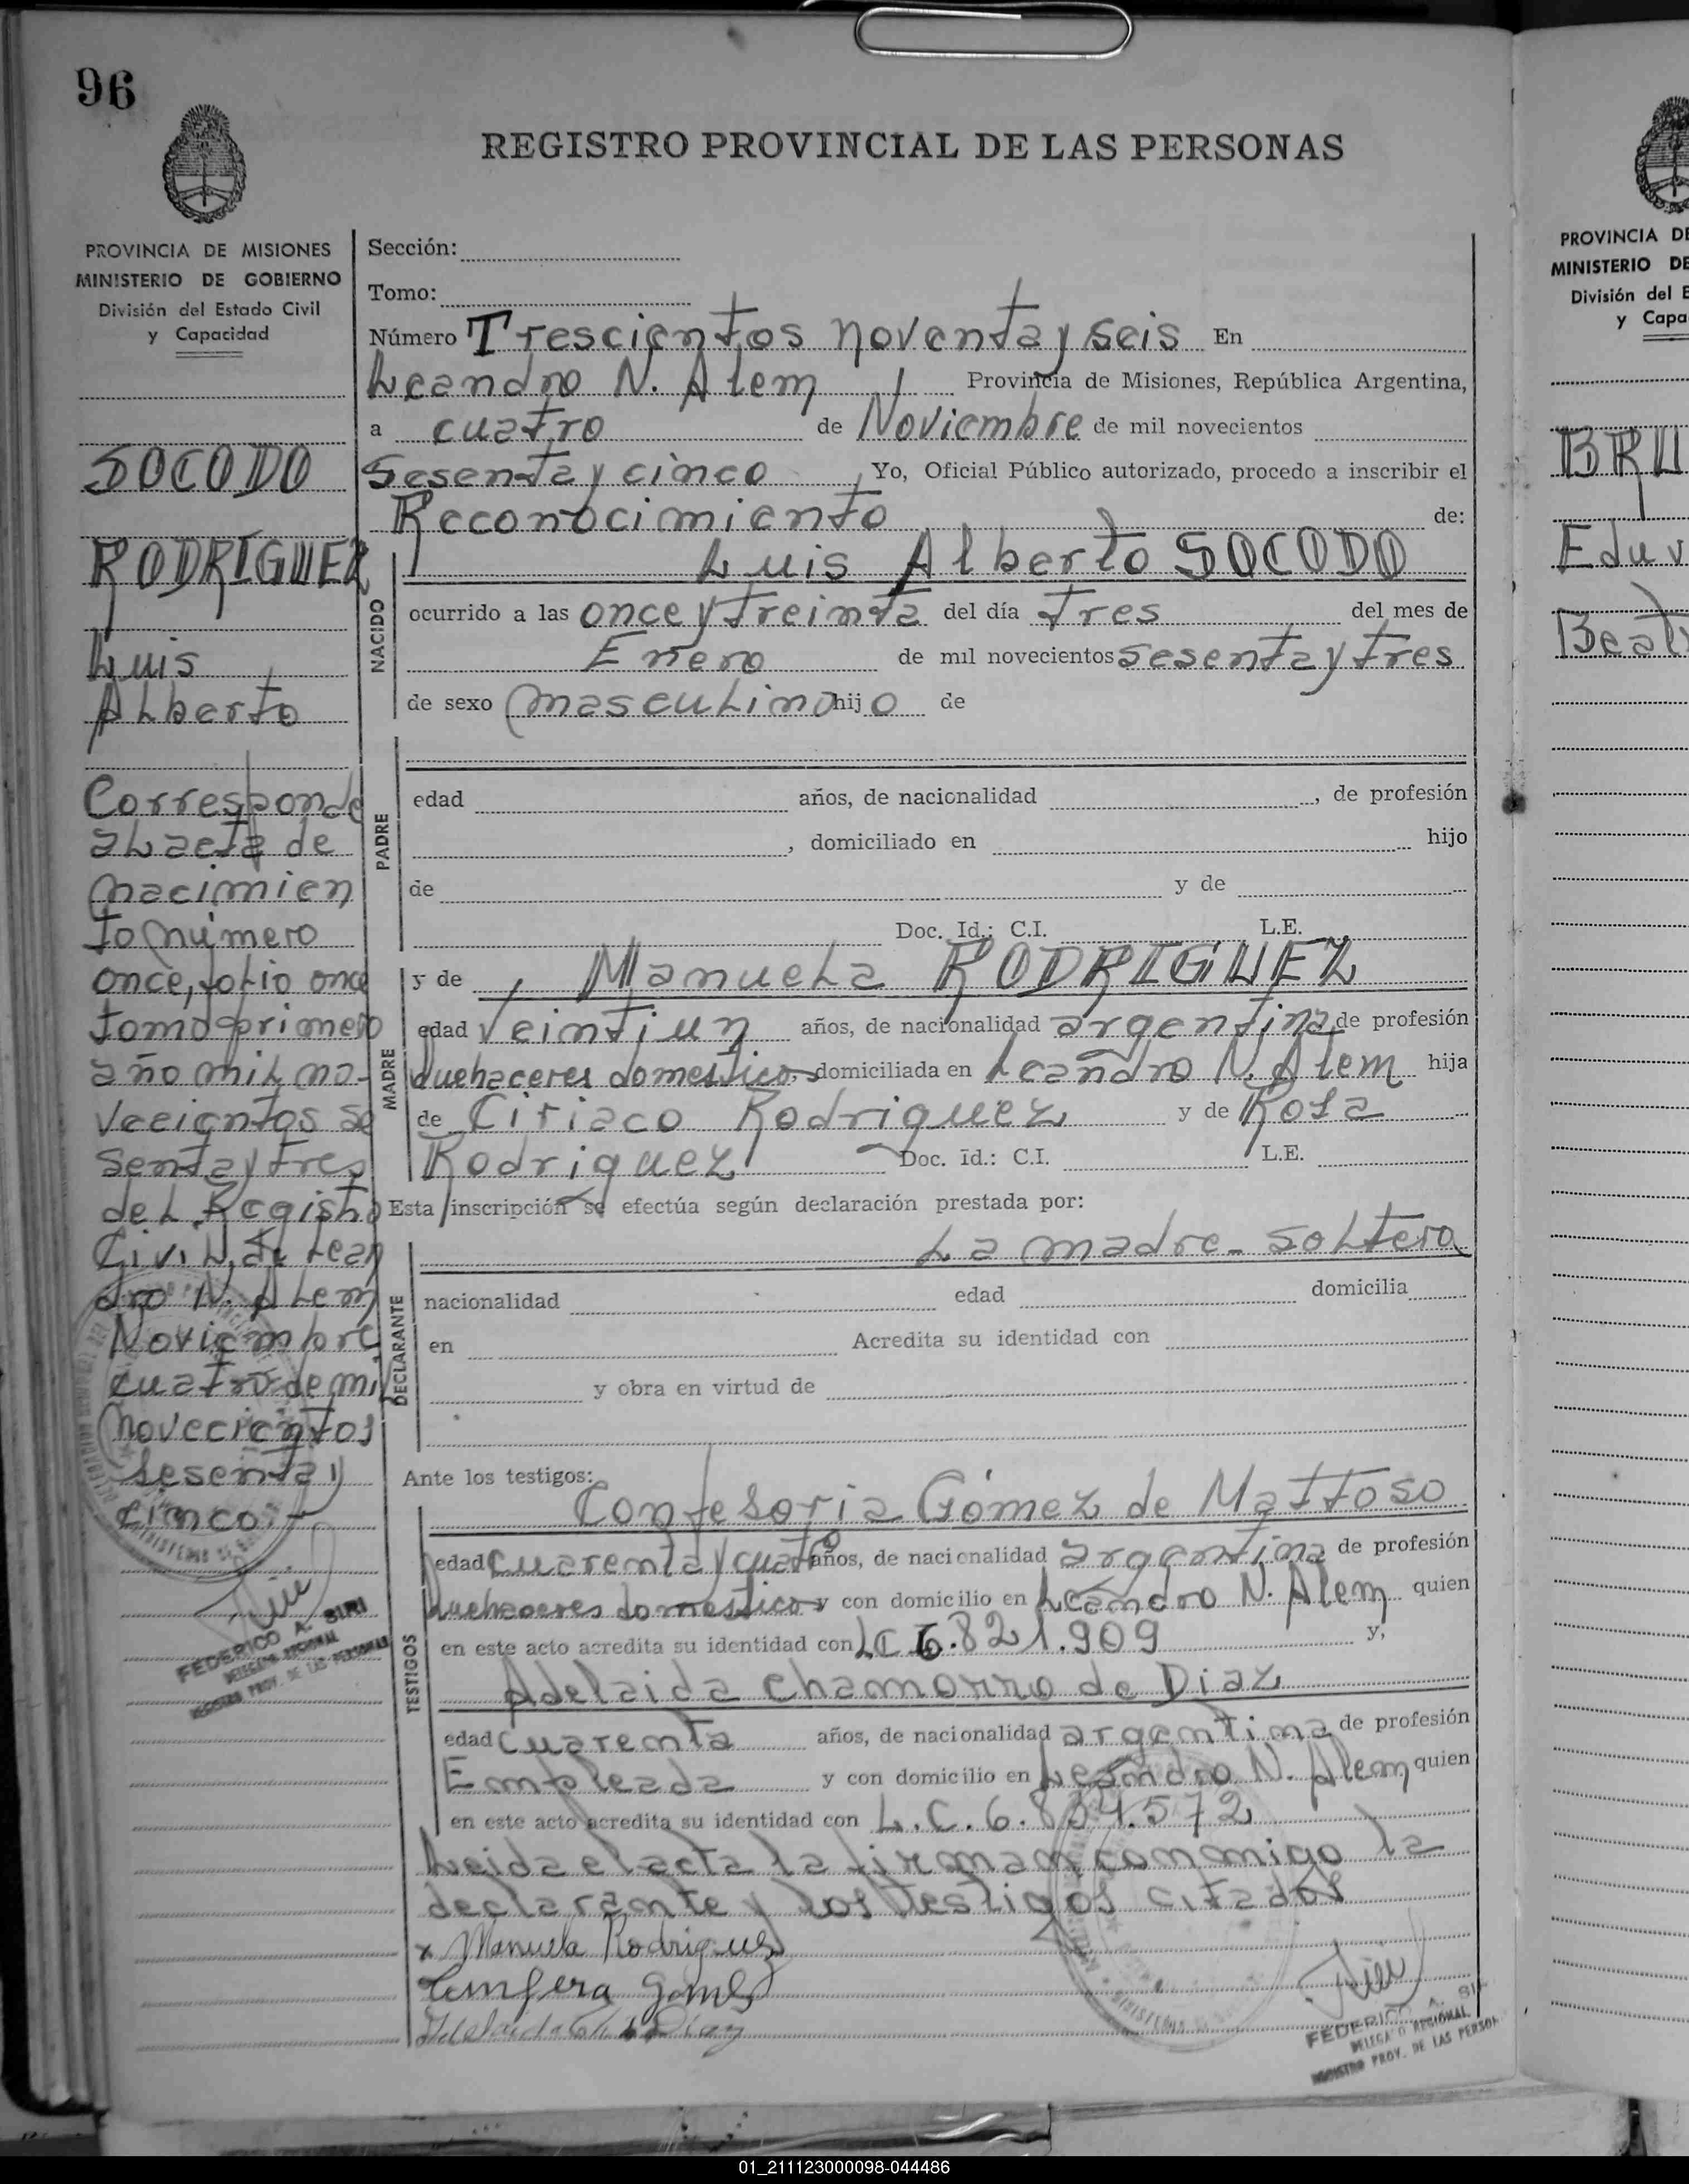 96
REGISTRO PROVINCIAL DE LAS PERSONAS
PROVINCIA DE MISIONES
MINISTERIO DE GOBIERNO
División del Estado Civil
y Capacidad
SOCODO
RODRIGUEZ
Luis
Alberto
Corresponde
al acta de
nacimien
to número
once, folio once
tomo primero
año mil no-
vecientos se
senta y tres
del Registro
Civil de Lean
dro N. Alem
Noviembre
cuatro de mil
novecientos
sesenta y
cinco.-
FEDERICO A. SIRI
DELEGADO REGIONAL
REGISTRO PROV. DE LAS PERSONAS
Sección:
Tomo:
Número Trescientos noventa y seis En
Leandro N. Alem Provincia de Misiones, República Argentina,
a cuatro de Noviembre de mil novecientos
sesenta y cinco Yo, Oficial Público autorizado, procedo a inscribir el
Reconocimiento de:
NACIDO
Luis Alberto SOCODO
ocurrido a las once y treinta del día tres del mes de
Enero de mil novecientos sesenta y tres
de sexo masculino hijo de
PADRE
edad años, de nacionalidad , de profesión
, domiciliado en hijo
de y de
Doc. Id.: C.I. L.E.
MADRE
y de Manuela RODRIGUEZ
edad veintiun años, de nacionalidad argentina de profesión
quehaceres domesticos, domiciliada en Leandro N. Alem hija
de Ciriaco Rodriguez y de Rosa
Rodriguez Doc. Id.: C.I. L.E.
Esta inscripción se efectúa según declaración prestada por:
DECLARANTE
La madre - soltera
nacionalidad edad domicilia
en Acredita su identidad con
y obra en virtud de
Ante los testigos:
TESTIGOS
Confesoria Gómez de Mattoso
edad cuarenta y cuatro años, de nacionalidad argentina de profesión
quehaceres domesticos y con domicilio en Leandro N. Alem quien
en este acto acredita su identidad con LC 6.821.909 y,
Adelaida Chamorro de Diaz
edad cuarenta años, de nacionalidad argentina de profesión
Empleada y con domicilio en Leandro N. Alem quien
en este acto acredita su identidad con L.C. 6.834.572
Leida el acta la firman conmigo la
declarante y los testigos citados
x Manuela Rodriguez
Gomez
Diaz
FEDERICO A. SIRI
DELEGADO REGIONAL
REGISTRO PROV. DE LAS PERSON
PROVINCIA DE
MINISTERIO DE
División del E
y Capa
BRU
Eduv
Beat
01_211123000098-044486